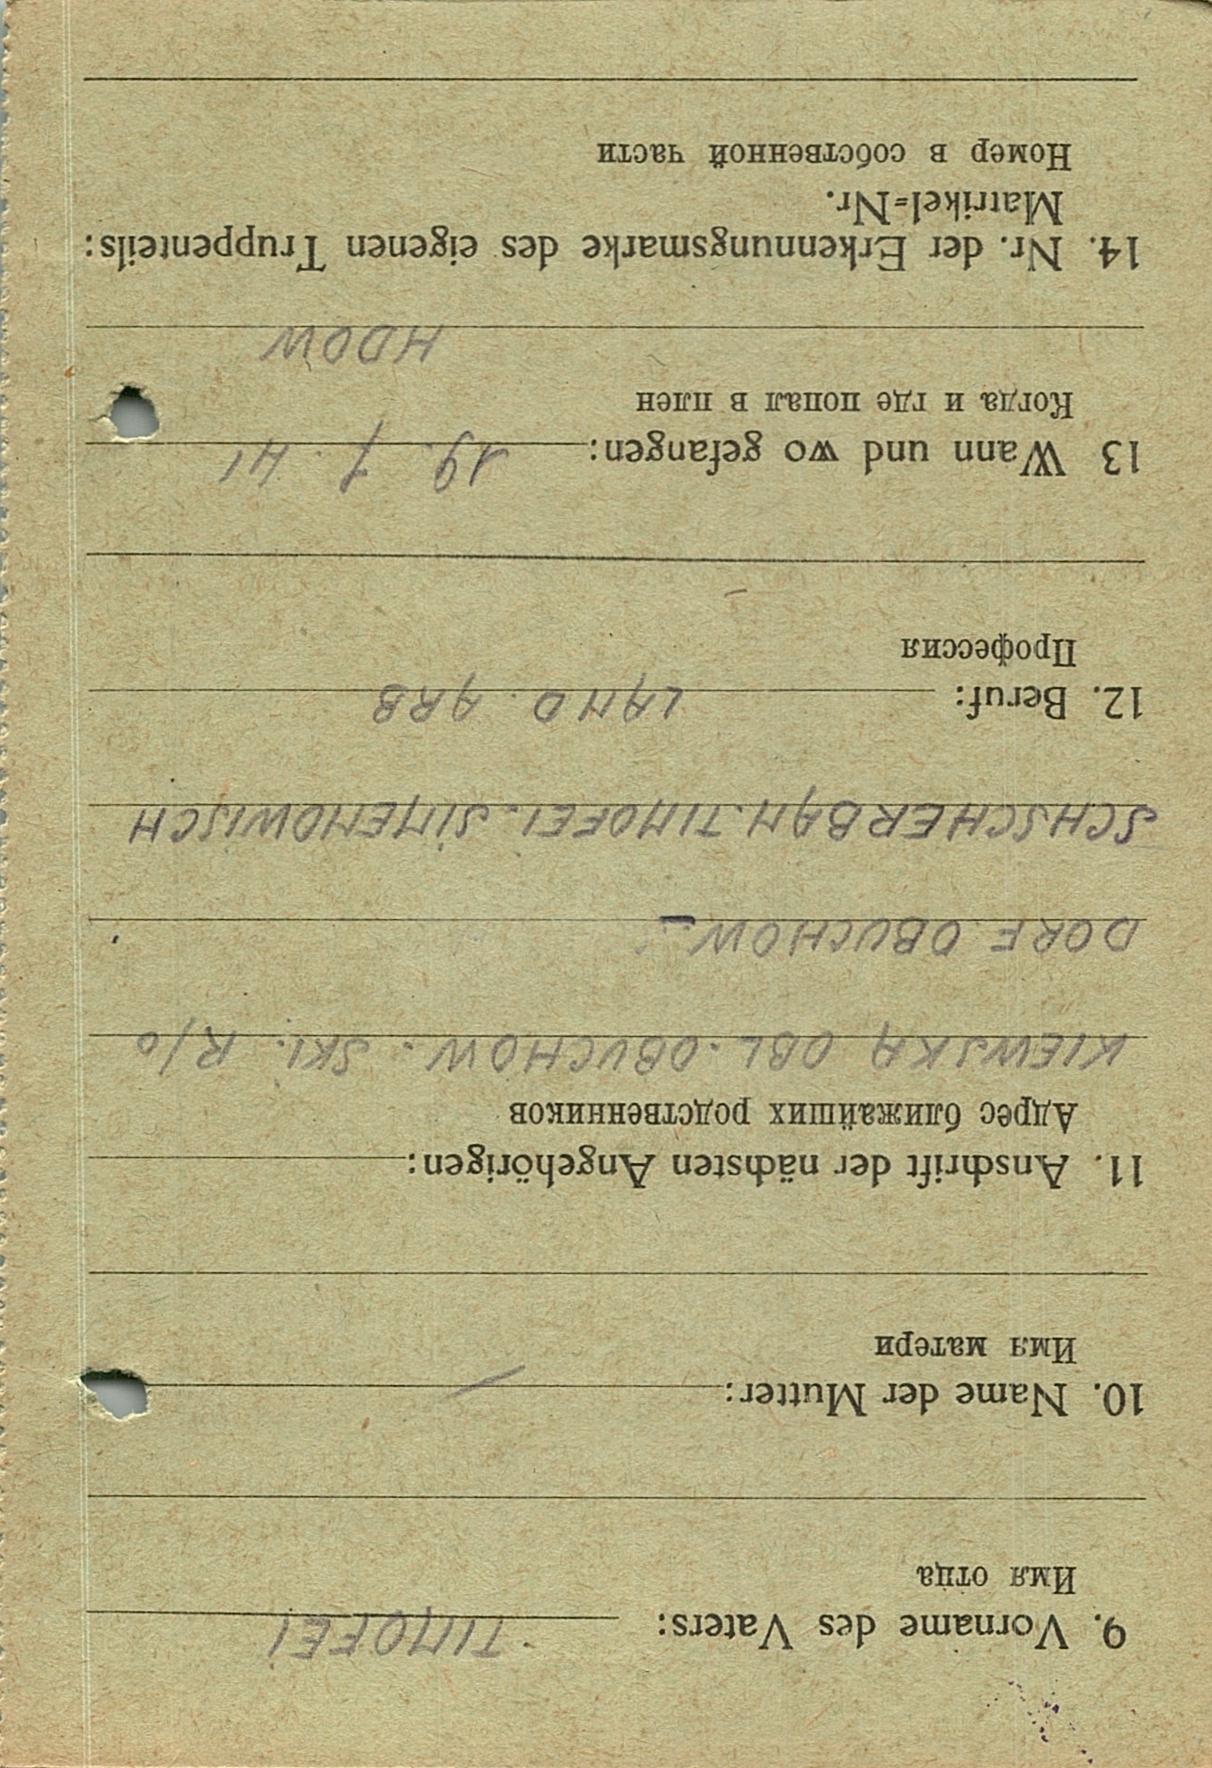 9. Vorname des Vaters: TIMOFEI
Имя отца
10. Name der Mutter: —
Имя матери
11. Anschrift der nächsten Angehörigen:
Адрес ближайших родственников
KIEWSKA OBL. OBUCHOW. SKI. R/O
DORF OBUCHOW-
SCHSCHERBAN. TIMOFEI. SIMENOWISCH
12. Beruf: LAND. ARB
Профессия
13 Wann und wo gefangen: 19. 7. 41
Когда и где попал в плен
HDOW
14. Nr. der Erkennungsmarke des eigenen Truppenteils:
Matrikel=Nr.
Номер в собственной части